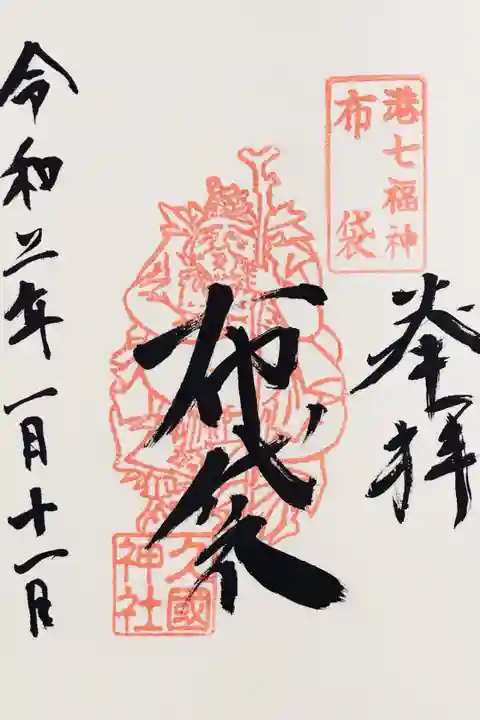 港七福神
布袋
奉拝
布袋
久國
神社
令和二年一月十一日